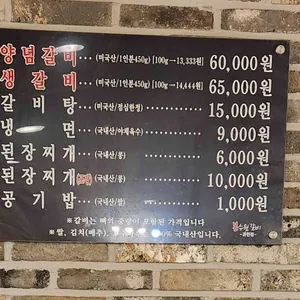 양념갈비 (미국산/1인분450g) [100g→13,333원] 60,000원
생갈비 (미국산/1인분450g) [100g→14,444원] 65,000원
갈비탕 (미국산/점심한정) 15,000원
냉면 (국내산/야채육수) 9,000원
된장찌개 (국내산/콩) 6,000원
된장찌개 (국내산/콩) 10,000원
공기밥 (국내산/쌀) 1,000원
※갈비는 뼈의 중량이 포함된 가격입니다
※쌀, 김치(배추), 100% 국내산입니다.
본수원갈비